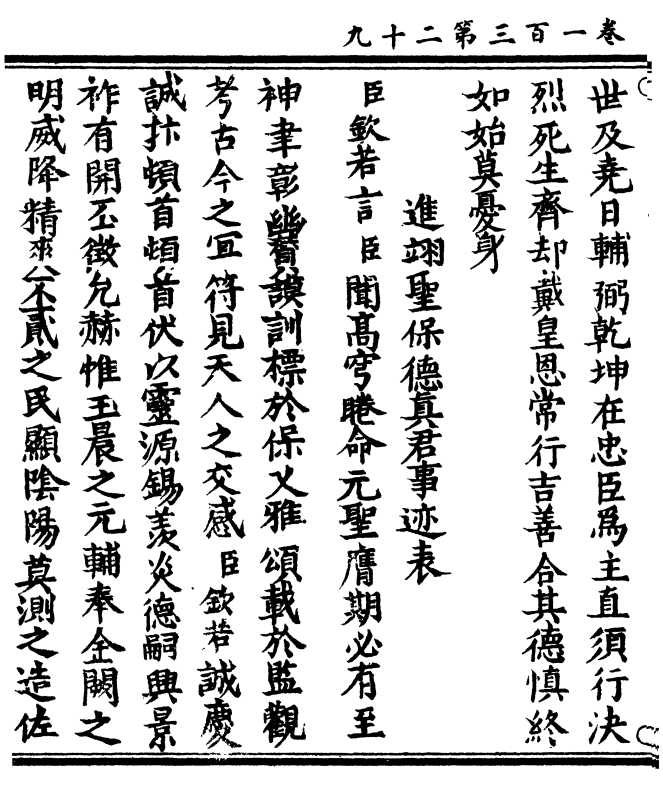 卷一百三第二十九
世及堯日輔弼乾坤在忠臣爲主直須行決
烈死生齊却戴皇恩常行吉善合其德慎終
如始莫憂身
進翊聖保德真君事迹表
臣欽若言臣聞高穹睠命元聖膺期必有至
神聿彰幽贊謨訓標於保乂雅頌載於監觀
考古今之宜符見天人之交感臣欽若誠慶
誠抃頓首頓首伏以靈源錫羨炎德嗣興景
祚有開丕徵允赫惟玉晨之元輔奉金闕之
明威降精來公丕貳之民顯陰陽莫測之造佐